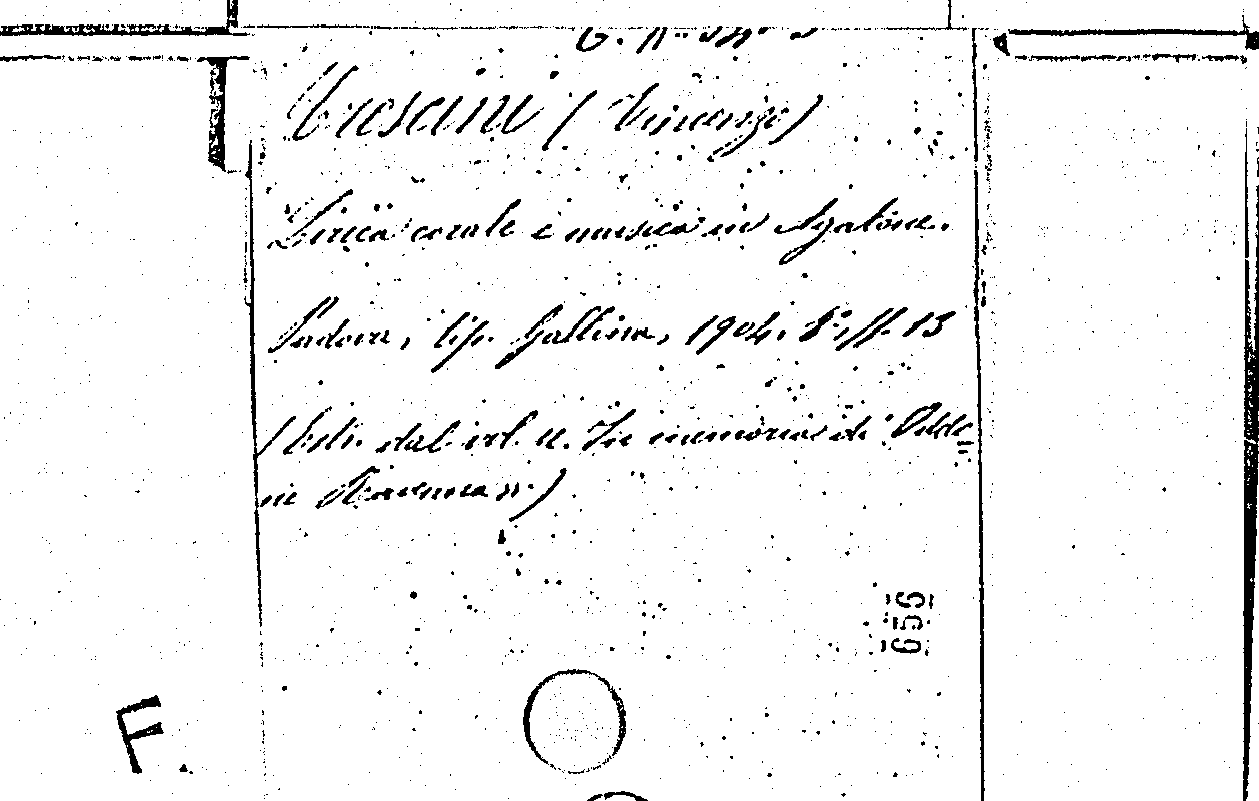 Crescini (Vincenzo)
Lirica corale e musica in Agatone.
Padova, tip. Gallina, 1904. 8°, pp. 13
(Estr. dal vol. «. In memoria di Oddo
ne Ravenna ».)
656
F.